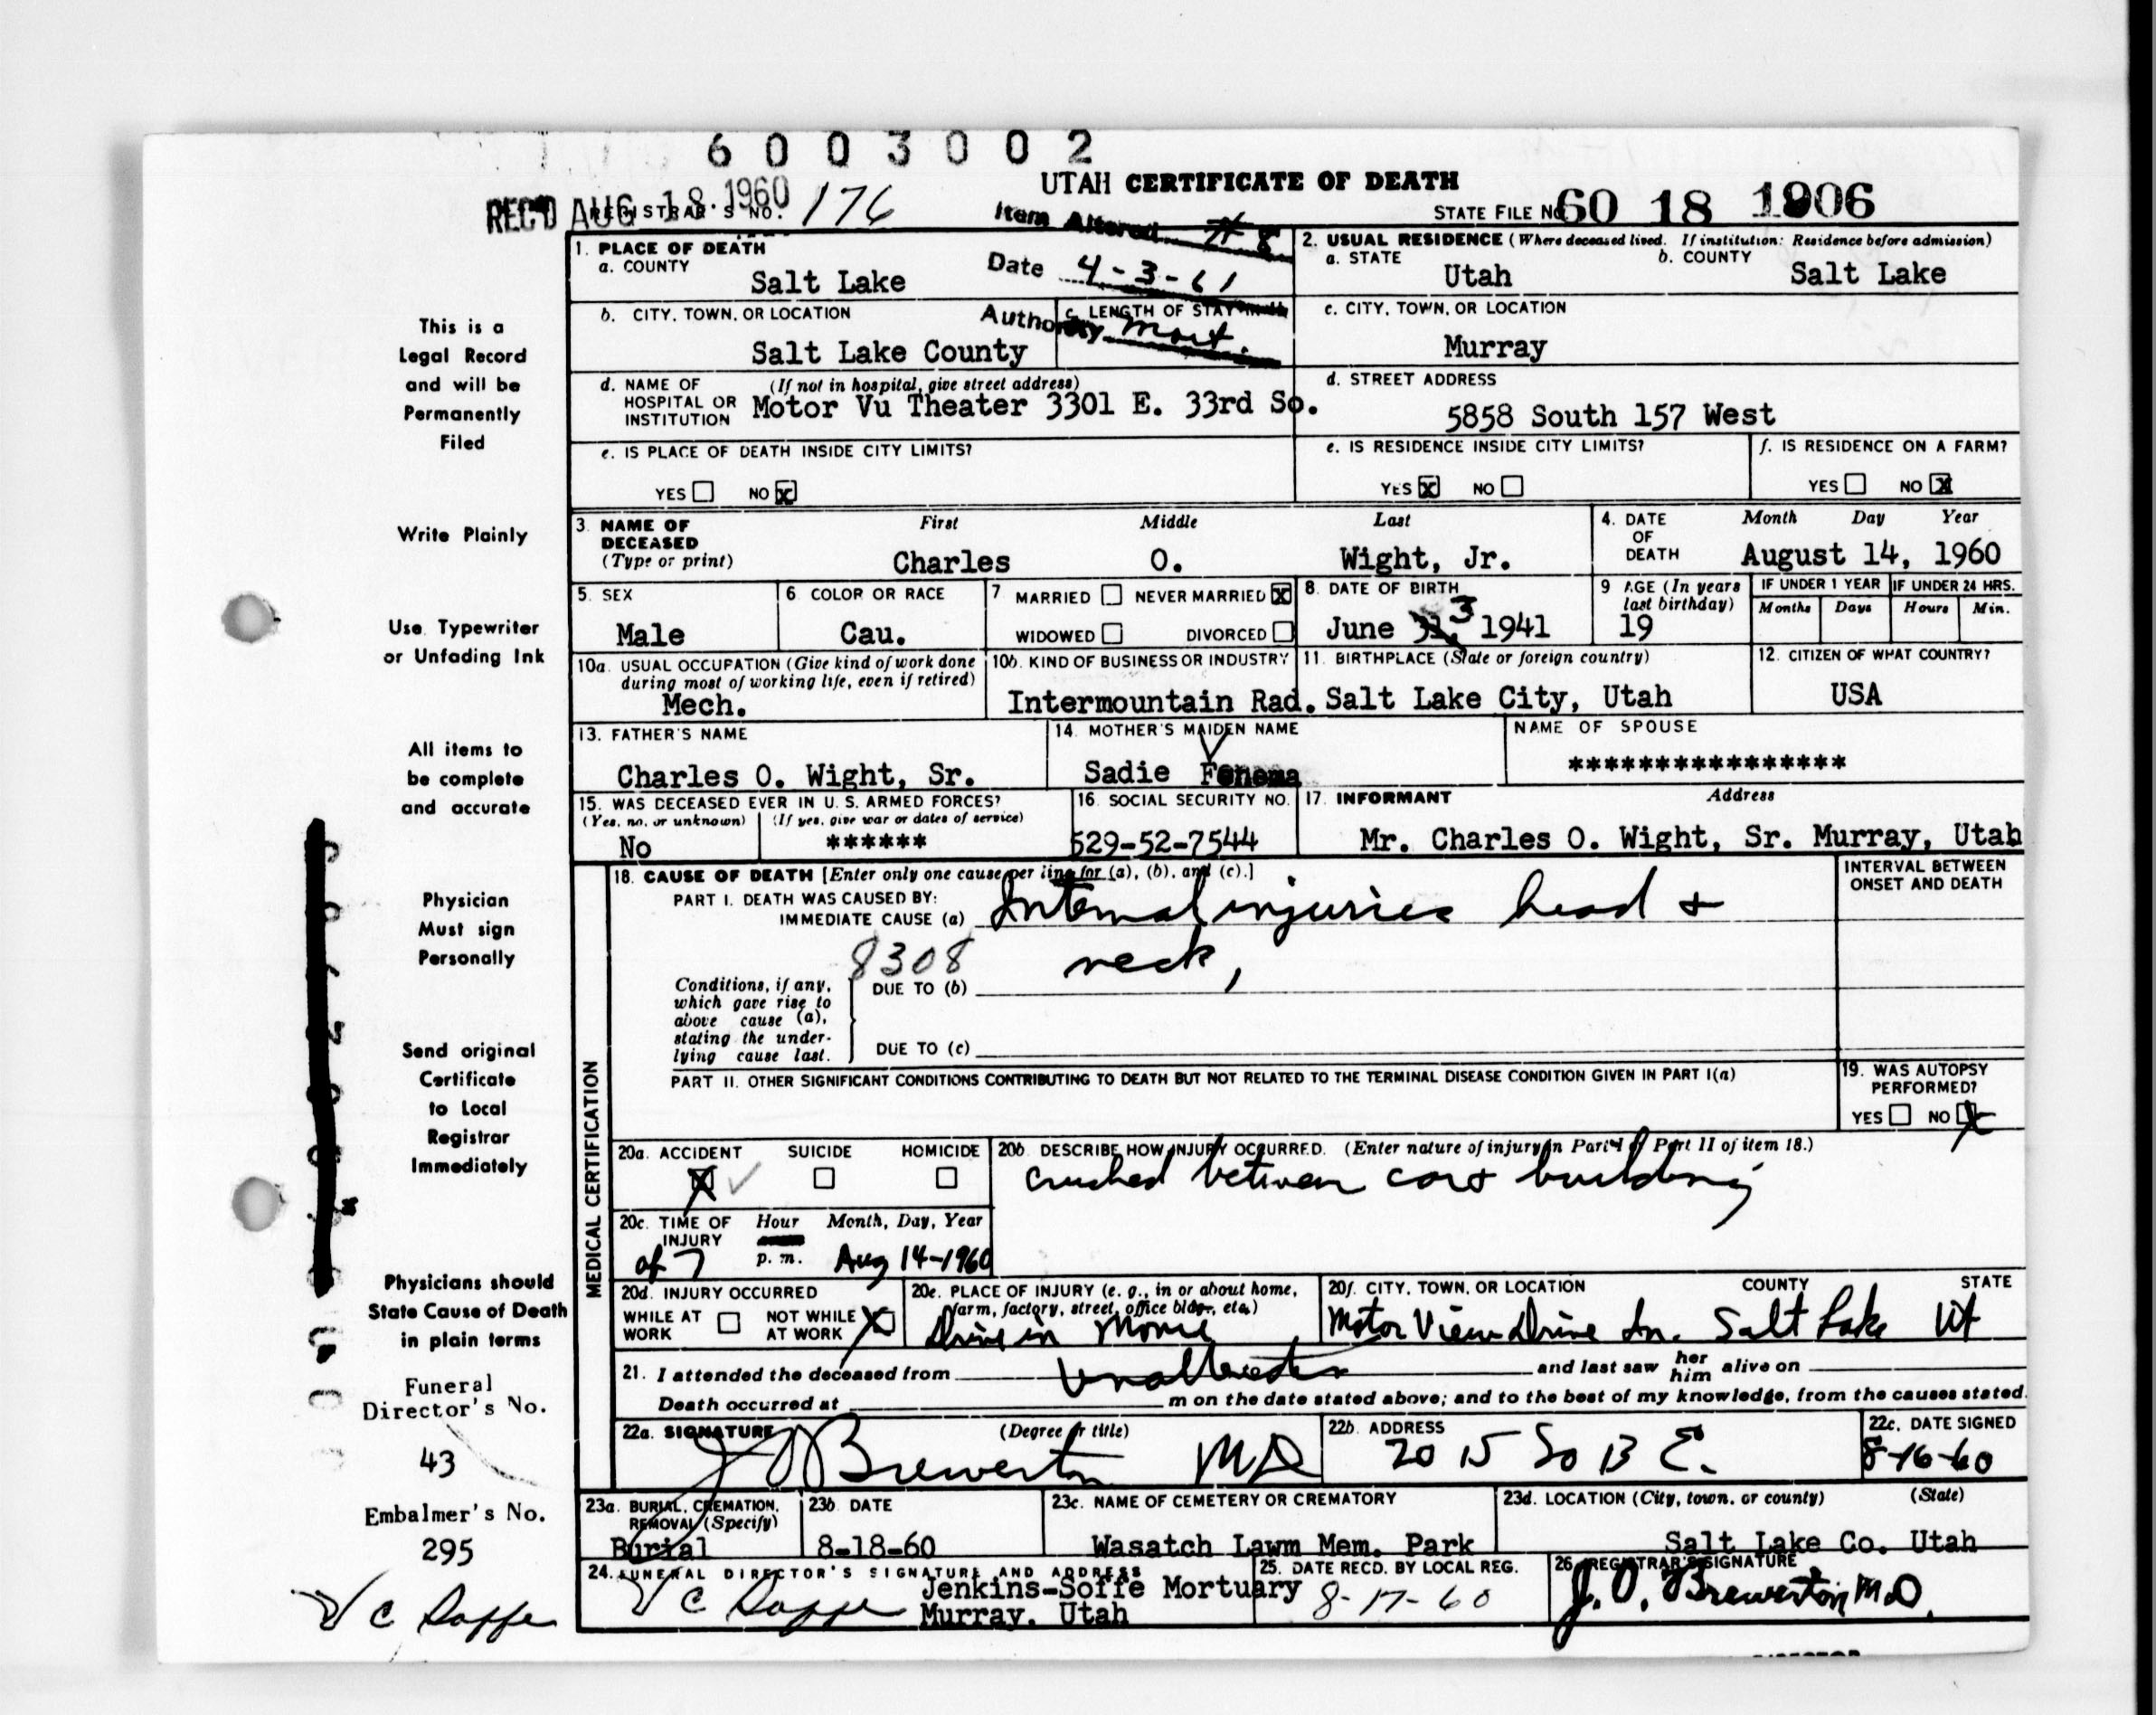 6003002
REC'D AUG 18 1960
REGISTRAR'S NO. 176
UTAH CERTIFICATE OF DEATH
STATE FILE NO. 60 18 1906
Item Altered # 8
Date 4-3-61
Authority Mort.
1. PLACE OF DEATH
a. COUNTY
Salt Lake
b. CITY, TOWN, OR LOCATION
Salt Lake County
c. LENGTH OF STAY
d. NAME OF HOSPITAL OR INSTITUTION (If not in hospital, give street address)
Motor Vu Theater 3301 E. 33rd So.
e. IS PLACE OF DEATH INSIDE CITY LIMITS?
YES NO X
2. USUAL RESIDENCE (Where deceased lived. If institution: Residence before admission)
a. STATE Utah
b. COUNTY Salt Lake
c. CITY, TOWN, OR LOCATION
Murray
d. STREET ADDRESS
5858 South 157 West
e. IS RESIDENCE INSIDE CITY LIMITS?
YES X NO
f. IS RESIDENCE ON A FARM?
YES NO X
3. NAME OF DECEASED (Type or print)
First Middle Last
Charles O. Wight, Jr.
4. DATE OF DEATH
Month Day Year
August 14, 1960
5. SEX
Male
6. COLOR OR RACE
Cau.
7 MARRIED NEVER MARRIED X
WIDOWED DIVORCED
8. DATE OF BIRTH
June 3 1941
9 AGE (In years last birthday)
19
IF UNDER 1 YEAR
Months Days
IF UNDER 24 HRS.
Hours Min.
10a. USUAL OCCUPATION (Give kind of work done during most of working life, even if retired)
Mech.
10b. KIND OF BUSINESS OR INDUSTRY
Intermountain Rad.
11. BIRTHPLACE (State or foreign country)
Salt Lake City, Utah
12. CITIZEN OF WHAT COUNTRY?
USA
13. FATHER'S NAME
Charles O. Wight, Sr.
14. MOTHER'S MAIDEN NAME
Sadie Fenema
NAME OF SPOUSE
****************
15. WAS DECEASED EVER IN U. S. ARMED FORCES?
(Yes, no, or unknown) (If yes, give war or dates of service)
No ******
16. SOCIAL SECURITY NO.
529-52-7544
17. INFORMANT Address
Mr. Charles O. Wight, Sr. Murray, Utah
MEDICAL CERTIFICATION
18. CAUSE OF DEATH [Enter only one cause per line for (a), (b), and (c).]
PART I. DEATH WAS CAUSED BY:
IMMEDIATE CAUSE (a) Internal injuries head +
neck,
8308
Conditions, if any, which gave rise to above cause (a), stating the underlying cause last.
DUE TO (b)
DUE TO (c)
INTERVAL BETWEEN ONSET AND DEATH
PART II. OTHER SIGNIFICANT CONDITIONS CONTRIBUTING TO DEATH BUT NOT RELATED TO THE TERMINAL DISEASE CONDITION GIVEN IN PART I(a)
19. WAS AUTOPSY PERFORMED?
YES NO X
20a. ACCIDENT SUICIDE HOMICIDE
X
20b. DESCRIBE HOW INJURY OCCURRED. (Enter nature of injury in Part I or Part II of item 18.)
crushed between car + building
20c. TIME OF INJURY
Hour Month, Day, Year
7 p. m. Aug 14-1960
20d. INJURY OCCURRED
WHILE AT WORK NOT WHILE AT WORK X
20e. PLACE OF INJURY (e. g., in or about home, farm, factory, street, office bldg., etc.)
Drive in Movie
20f. CITY, TOWN, OR LOCATION COUNTY STATE
Motor View Drive In. Salt Lake Ut
21. I attended the deceased from Unattended and last saw her him alive on
Death occurred at m on the date stated above; and to the best of my knowledge, from the causes stated.
22a. SIGNATURE (Degree or title)
J O Brewerton MD
22b. ADDRESS
2015 So 13 E.
22c. DATE SIGNED
8-16-60
23a. BURIAL, CREMATION, REMOVAL (Specify)
Burial
23b. DATE
8-18-60
23c. NAME OF CEMETERY OR CREMATORY
Wasatch Lawm Mem. Park
23d. LOCATION (City, town, or county) (State)
Salt Lake Co. Utah
24. FUNERAL DIRECTOR'S SIGNATURE AND ADDRESS
V C Soffe Jenkins-Soffe Mortuary
Murray, Utah
25. DATE RECD. BY LOCAL REG.
8-17-60
26. REGISTRAR'S SIGNATURE
J. O. Brewerton M.D.
This is a
Legal Record
and will be
Permanently
Filed
Write Plainly
Use Typewriter
or Unfading Ink
All items to
be complete
and accurate
Physician
Must sign
Personally
Send original
Certificate
to Local
Registrar
Immediately
Physicians should
State Cause of Death
in plain terms
Funeral
Director's No.
43
Embalmer's No.
295
V C Soffe